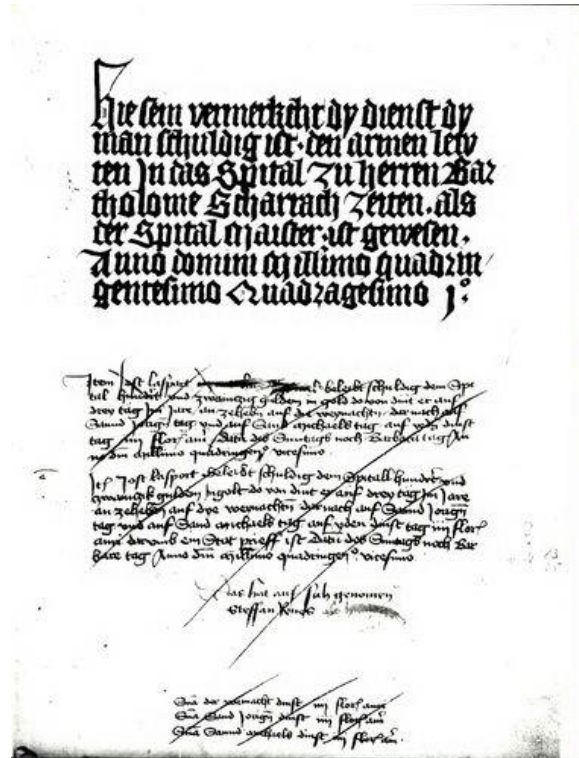 Hie sein vermerkcht dy dienst dy
man schuldig ist den armen lew
ten In das Spital zu herren Bar
tholome Scharrach zeiten als
der Spital Maister ist gewesen
Anno domini Millimo quadrin
gentesimo Quadragesimo jº
Item Jost kaspart beleibt schuldig dem Spi
tal hundert vnd zwaintzig gulden in gold do von dint er auf
drey tag Im Jare an zehebn auf die weynachten dar nach auf
Sannd Jorign tag vnd auf Sand Michaels tag auf yedn dinst
tag iiij flor auri Datum des Suntags noch Barbara tag An
no dni Millimo quadringen vicesimo
It Jost kasport beleibt schuldig dem Spitall hundert vnd
zwainczik gulden Ingolt do von dint er auf drey tag Im Jare
an zeheben auf dye weynachtn dar nach auf Sannd Jorign
tag vnd auf Sand Michaels tag auf yden dinst tag iiij flor
auri dar vmb ein Stat prieff ist Datum des Suntags noch Bar
bare tag Anno dni Millimo quadringen vicesimo
Das hat auf sich genomen
Steffan
Sma der weinacht dinst iiij flor auri
Sma Sand Jorign dinst iiij flor auri
Sma Sannd Michaels dinst iiij flor auri